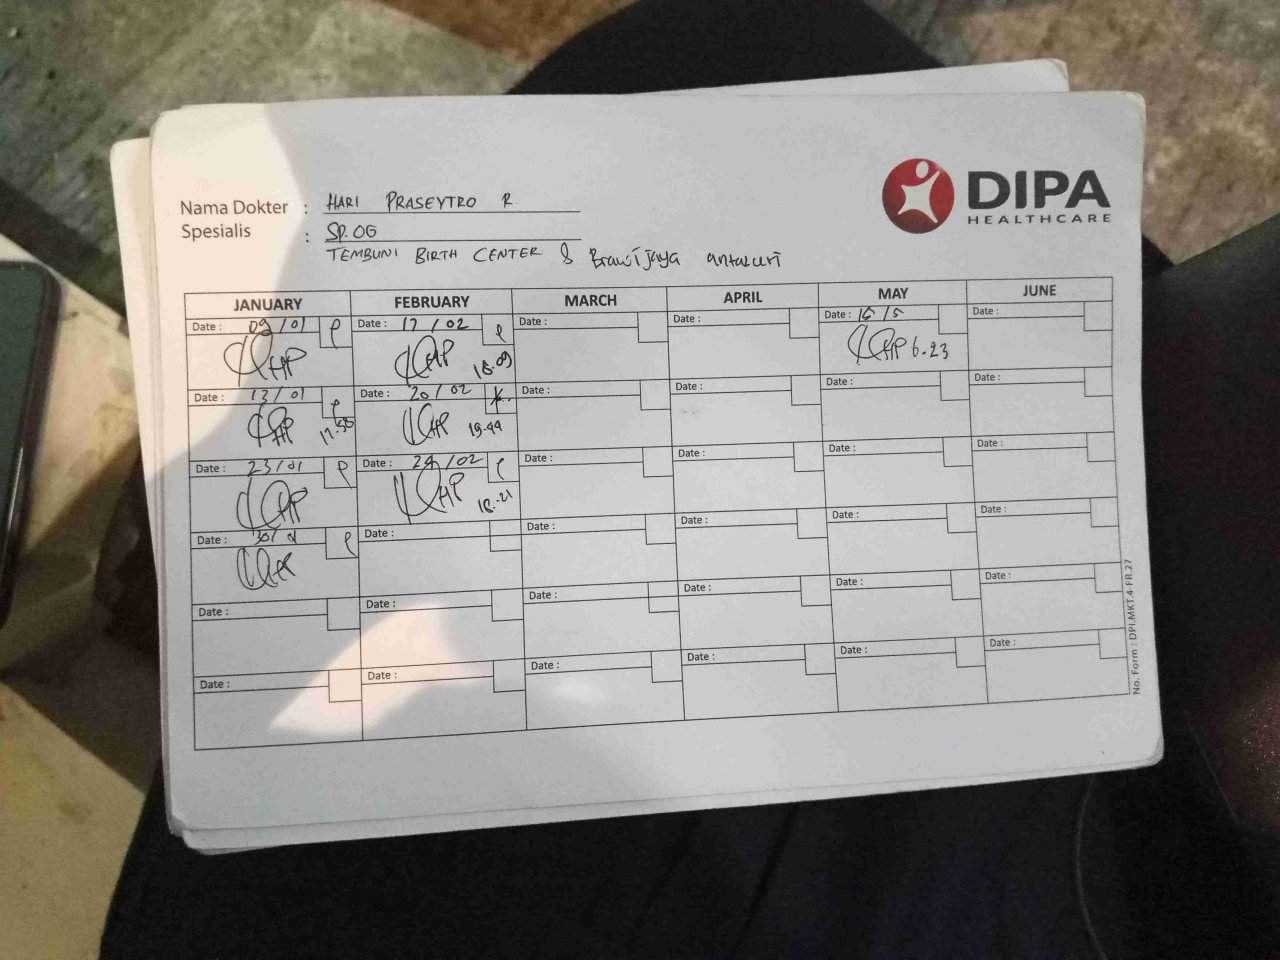 DIPA
HEALTHCARE
Nama Dokter : HARI PRASEYTRO R
Spesialis : SP.OG
TEMBUNI BIRTH CENTER & Brawijaya antasari
JANUARY FEBRUARY MARCH APRIL MAY JUNE
Date : 09/01 Date : 17/02 Date : Date : Date : 16/5 Date :
HP HP 18.09 HP 6.23
Date : 13/01 Date : 20/02 Date : Date : Date : Date :
HP 17.58 HP 19.44
Date : 23/01 Date : 24/02 Date : Date : Date : Date :
HP HP 18.21
Date : Date : Date : Date : Date : Date :
Date : Date : Date : Date : Date : Date :
Date : Date : Date : Date : Date : Date :
No. Form : DPI.MKT.4-FR.27